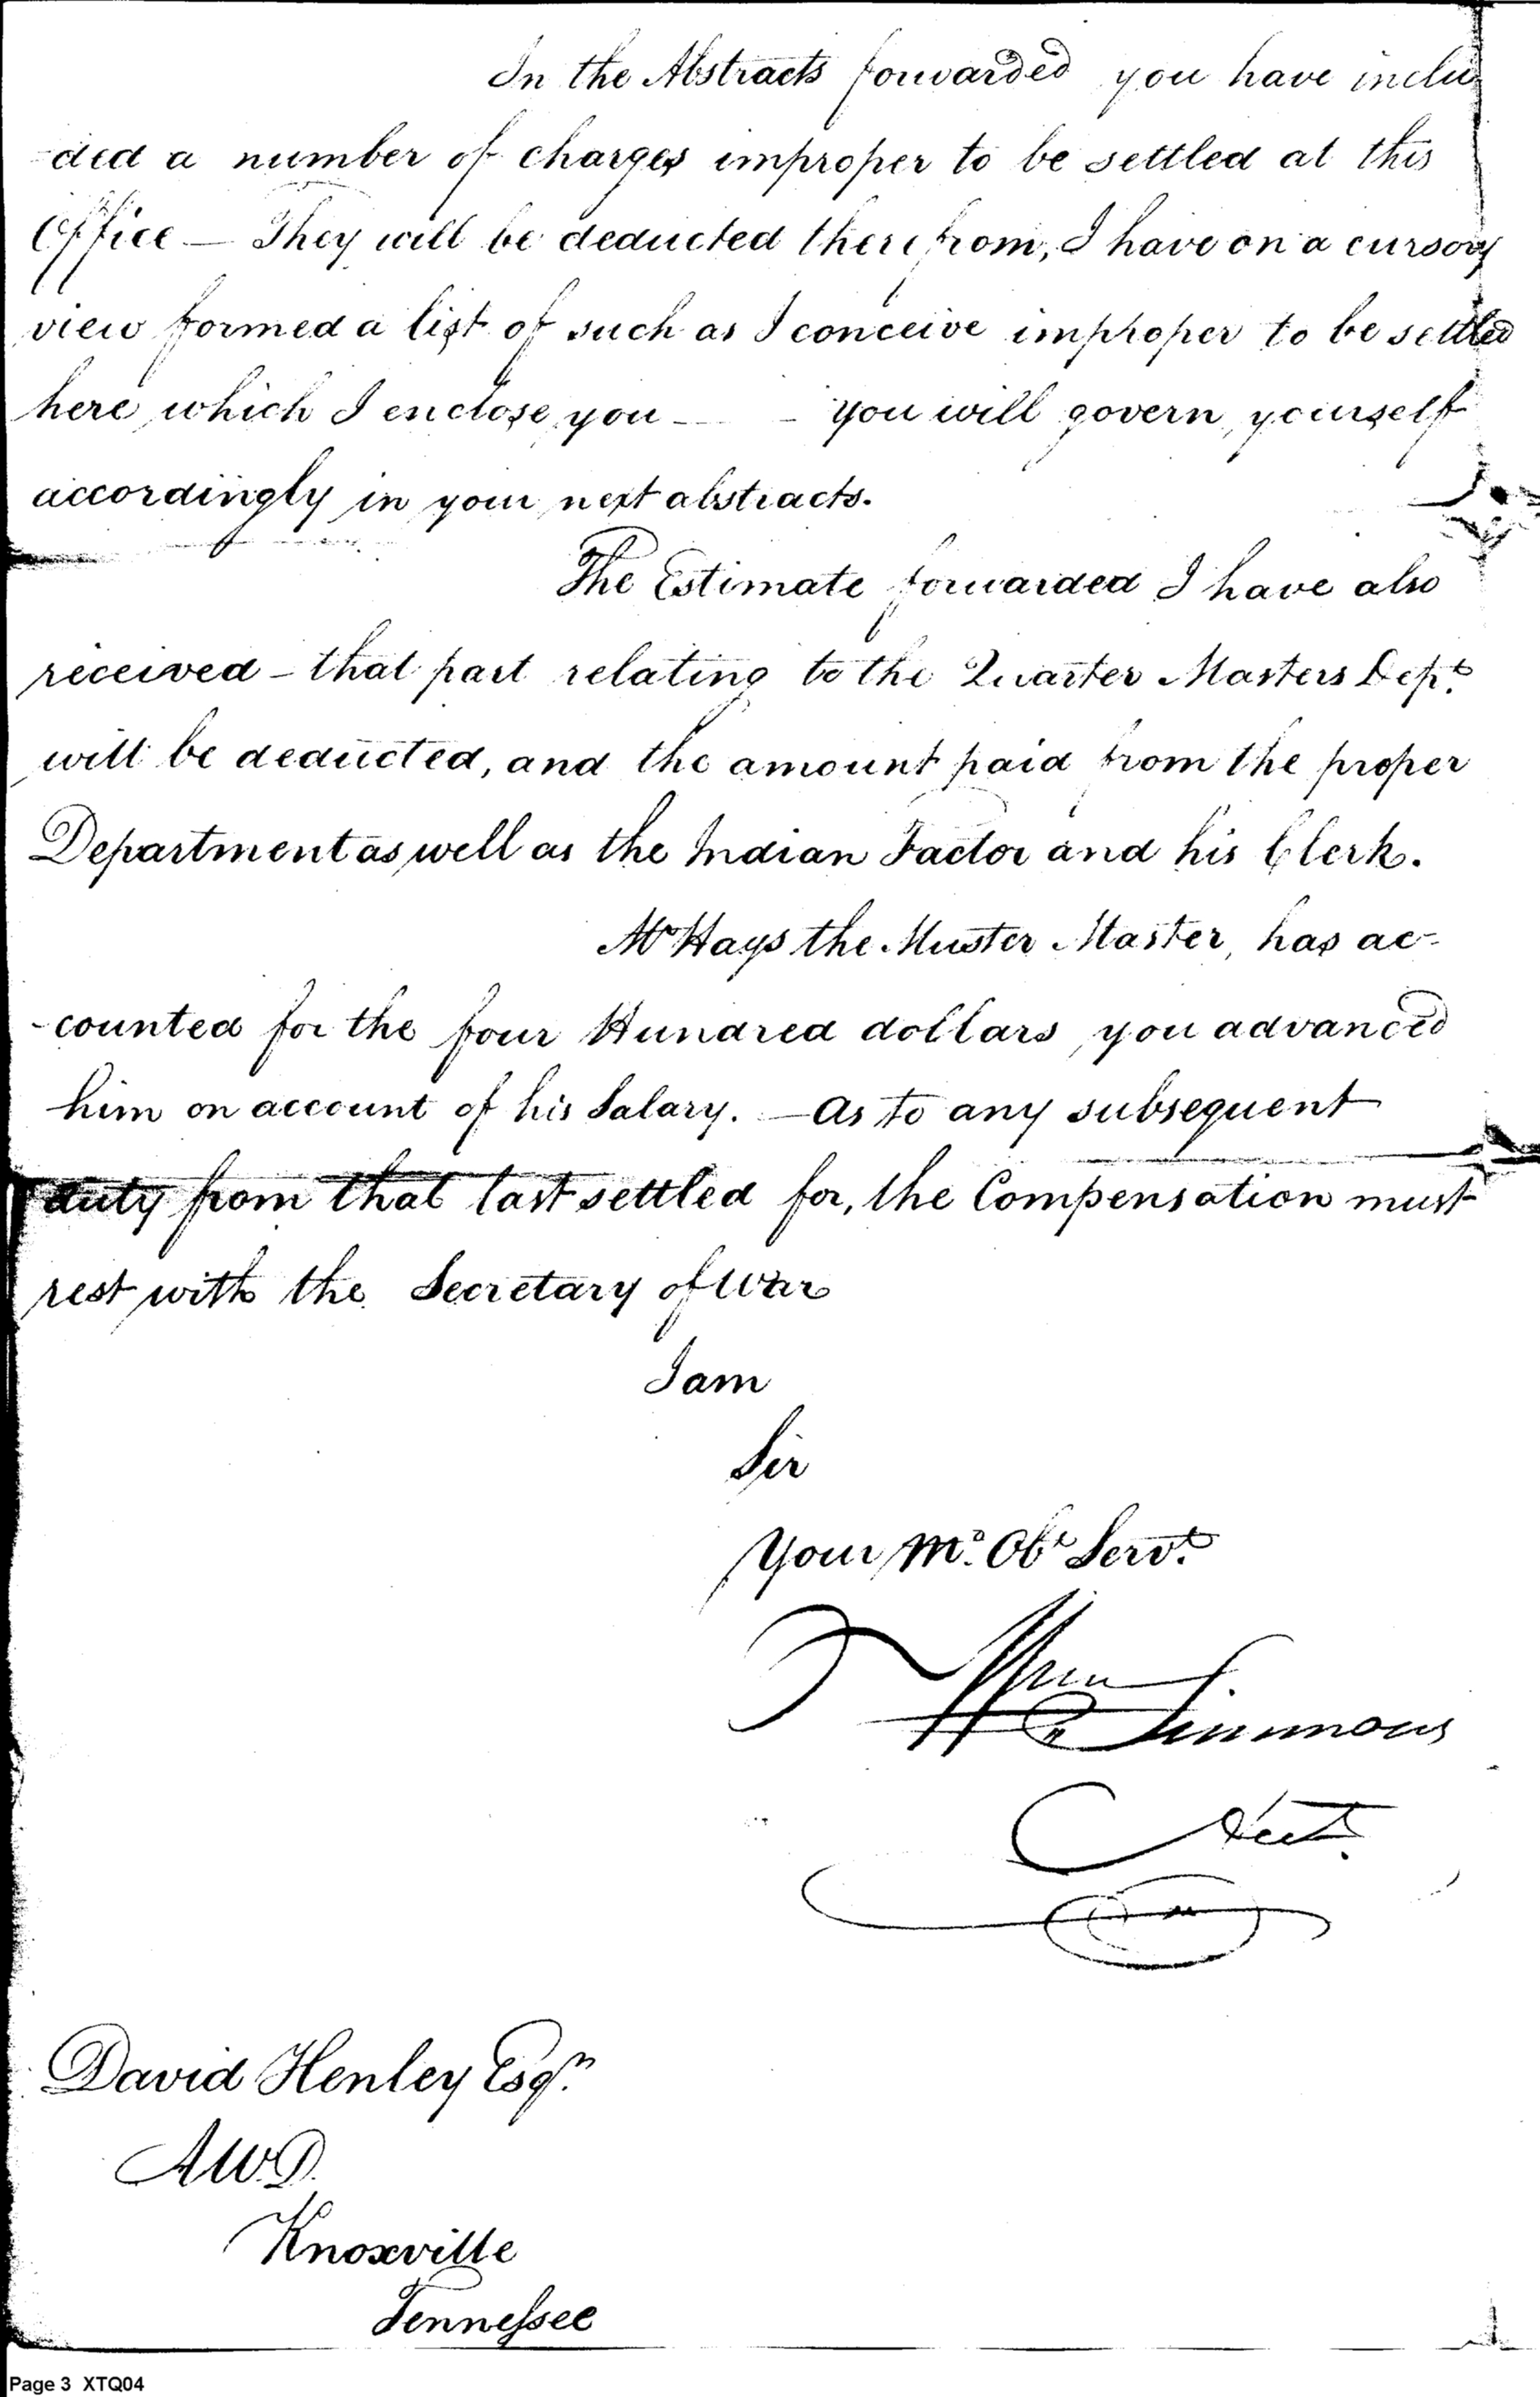 In the Abstracts forwarded you have inclu
-ded a number of charges improper to be settled at this
Office — They will be deducted therefrom, I have on a cursory
view formed a list of such as I conceive improper to be settled
here which I enclose you - - you will govern yourself
accordingly in your next abstracts.
The Estimate forwarded I have also
received - that part relating to the Quarter Masters Dept.
will be deducted, and the amount paid from the proper
Department as well as the Indian Factor and his Clerk.
Mr Hays the Muster Master, has ac-
-counted for the four Hundred dollars you advanced
him on account of his Salary. — as to any subsequent
duty from that last settled for, the Compensation must
rest with the Secretary of War
I am
Sir
Your Mo. Obt Servt.
Wm Simmons
Acct.
David Henley Esqr.
AWD.
Knoxville
Tennessee
Page 3 XTQ04